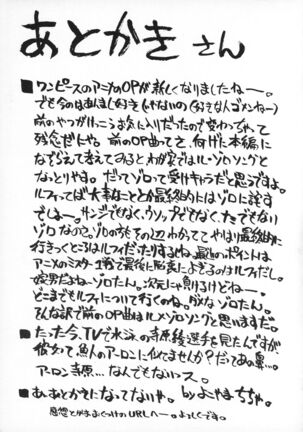 あとがきさん
■ワンピースのアニメのOPが新しくなりましたねー。
でも今のはあんまし好きじゃないの(好きな人ゴメンねー)
前のやつがけっこうお気に入りだったので変わっちゃって
残念だにゃ。前のOP曲ってさ、何げに本編に
なぞらえて考えてみるとわが家ではル→ゾロソングと
なっとりやす。だってゾロって受けキャラだと思うですよ。
ルフィってば大事なこととか最終的にはゾロに話す
でしょー。サンジでもなく、ウソップでもなく、たでもない
ゾロなのよ。ゾロもその辺わかっててやはり最終的に
行きつくところはルフィだったりするしね。最近のポイントは
アニメのミスター1戦で最後に脳裏によぎるのはルフィだし。
嫁男だよねーゾロたん。次元じゃ斬るけどねー。
どこまでもルフィについて行くのね。ダメなゾロたん。
そんな訳で前のOP曲はルメゾロソングと思いますた。
■たった今、TVで水泳の寺原綾選手を見たんですが
彼女って魚人のアーロンに似てませんか?だってあの鼻…。
アーロン寺原…なんでもないっス。
■あ、あとがきになってないや。by よこやまちちゃ。
感想とかあおくつけのURLへー。よろしくです。